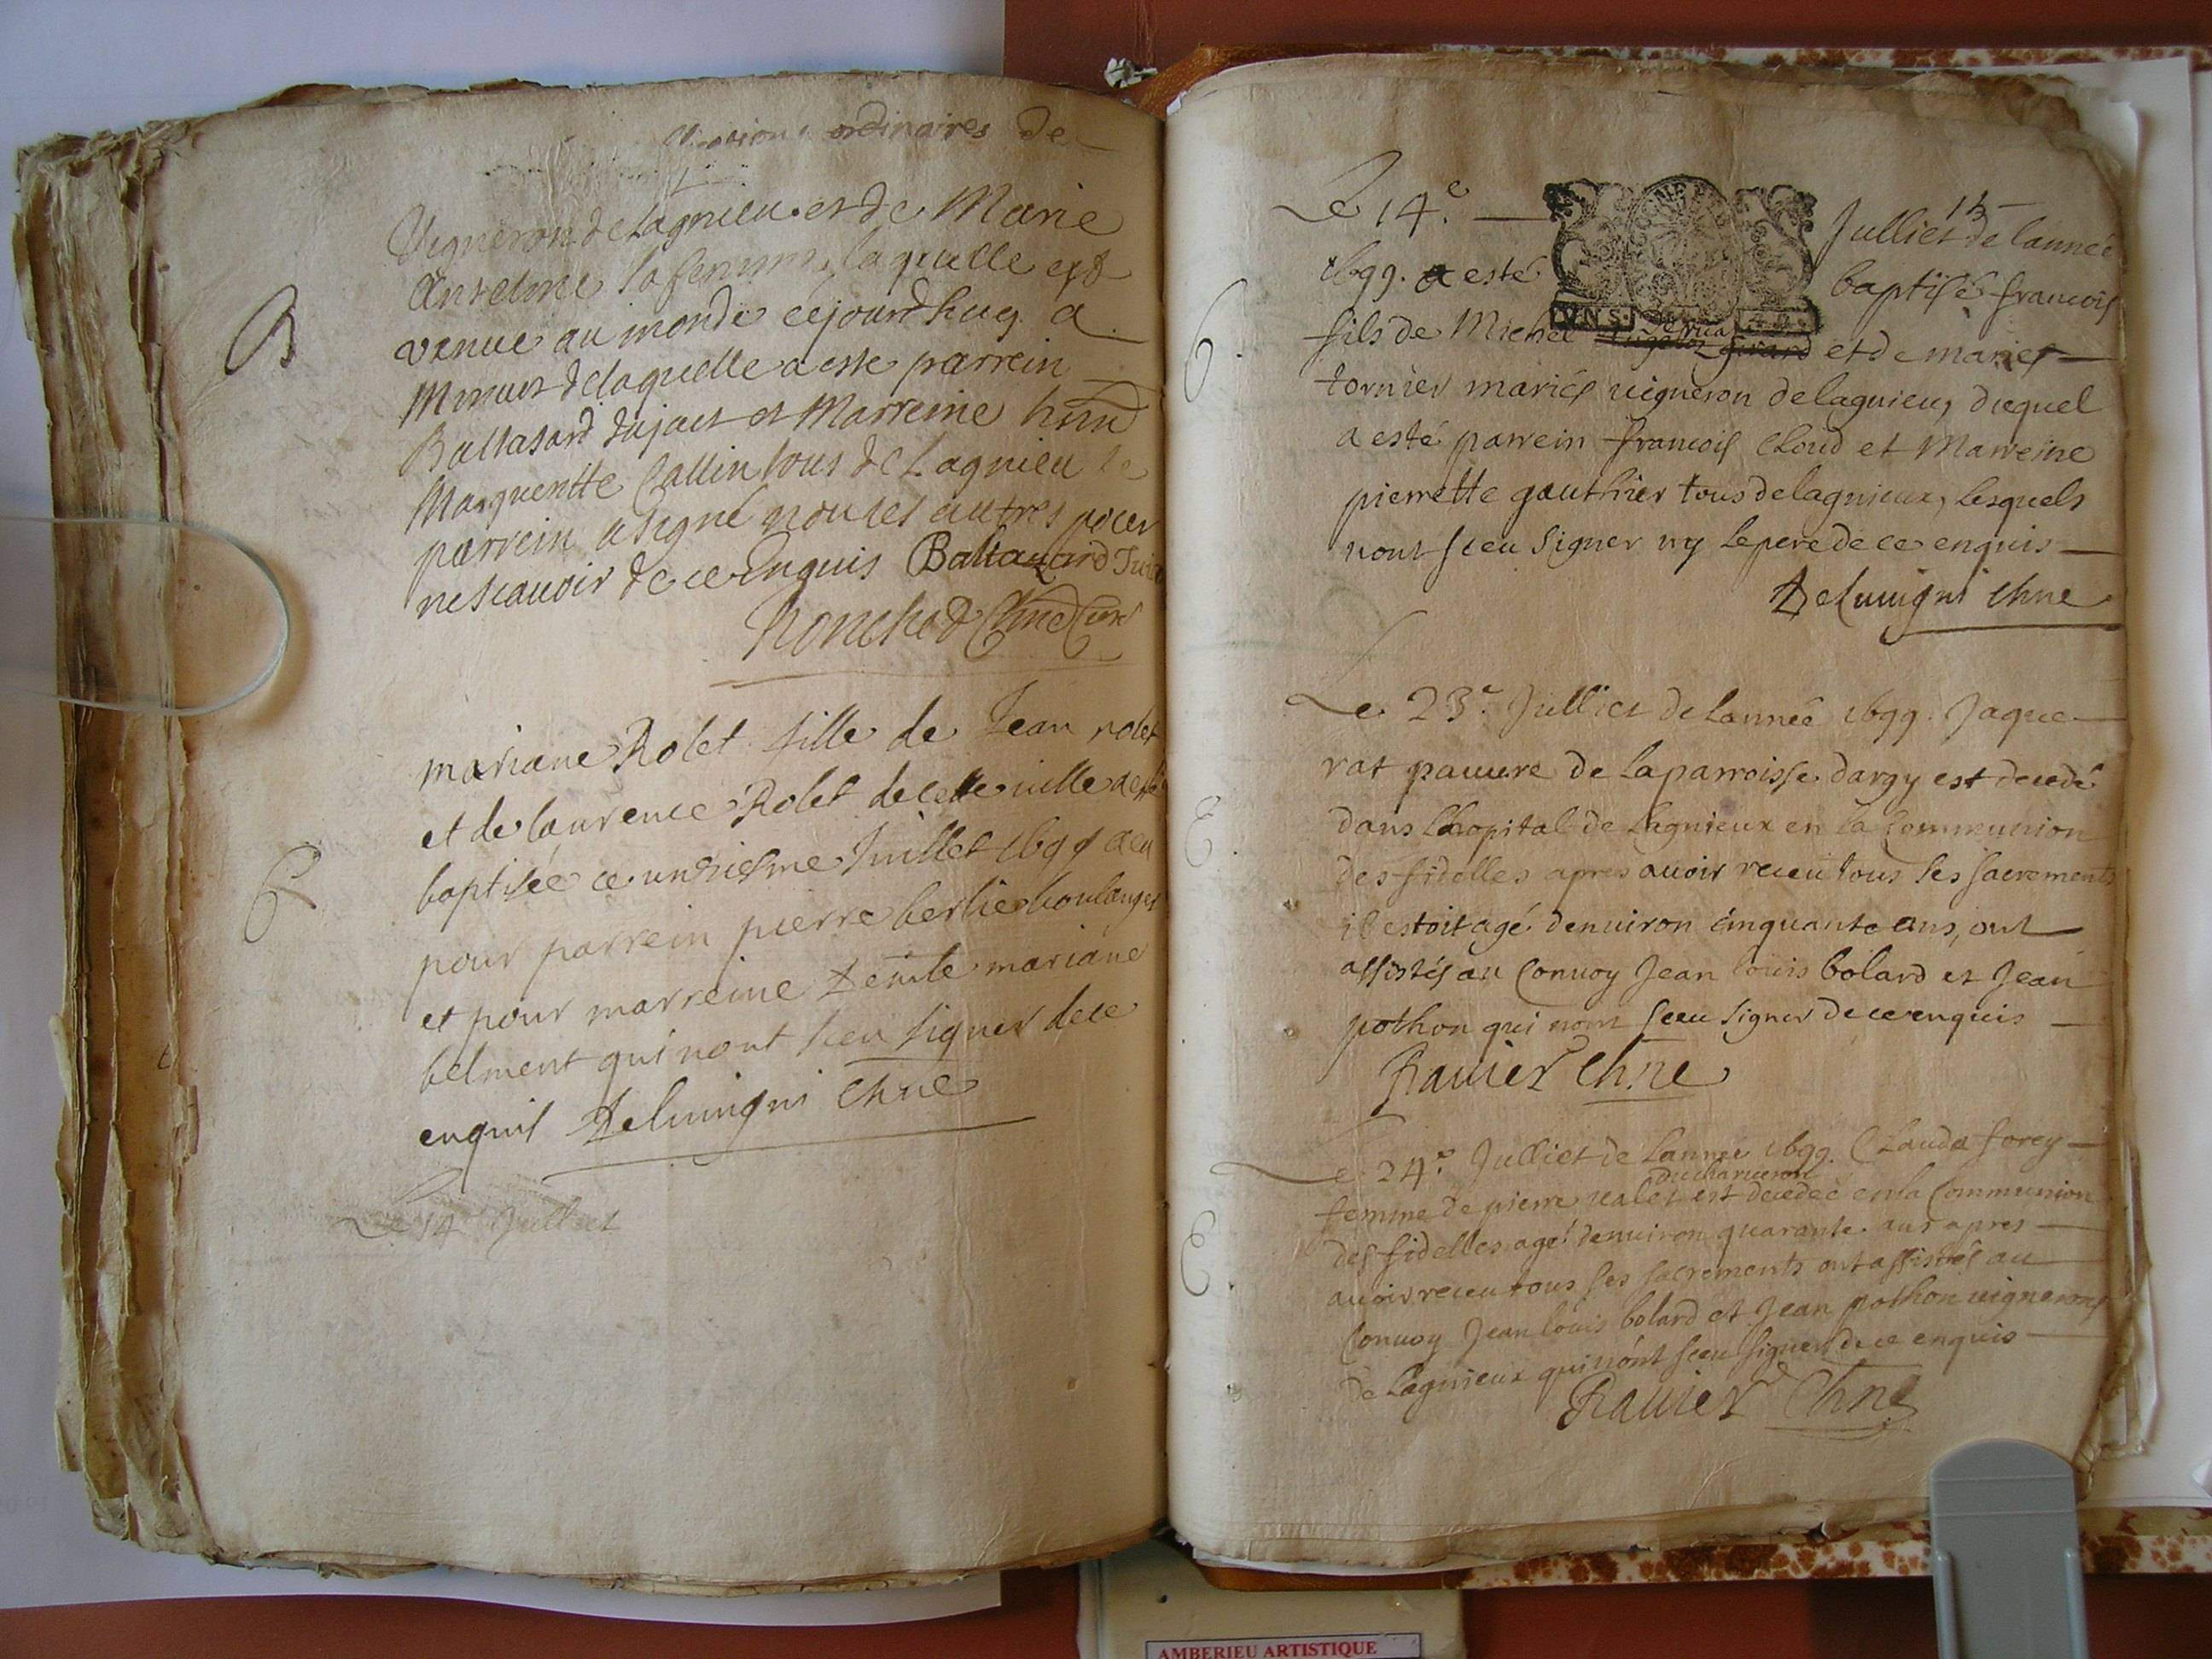 ordinaires de
Vigneron de Lagnieu et de Marie
Anselme sa femme, laquelle est
venue au monde cejourdhuy a
Minuit de laquelle a este parrein
Baltasard dujact et Marreine
Margueritte Callin tous de Lagnieu le
parrein a signé non les autres pour
ne scauoir de ce Enquis Baltazard
B
mariane Rolet fille de Jean rolet
et de laurence Rolet de cette uille a esté
baptisée ce unziesme Juillet 1699 a eu
pour parrein pierre berlie boulanger
et pour marreine mariane
belment qui nont sceu signer de ce
enquis Delunigni Chne
Le 14 Julliet
13
Le 14.e Julliet de lannée
1699. a esté baptisé francois
fils de Michel et de marie
tornier mariés uigneron de lagnieu, duquel
a esté parrein francois Cloud et Marreine
pierrette gauthier tous de lagnieux, lesquels
nont sceu signer ny le pere de ce enquis
Delunigni Chne
6.
Le 23.e Julliet de Lannée 1699. Jaque
rat pauure de La parroisse dargy est decedé
dans Lhopital de Lagnieux en la Communion
des fidelles apres auoir receu tous ses sacrements
il estoit agé denuiron cinquante ans, ont
assistés au Conuoy Jean louis bolard et Jean
pothon qui nont sceu signer de ce enquis
Rauier Chne
E.
Le 24.e Julliet de Lannée 1699. Clauda forey
femme de pierre ualet est decedeé en la Communion
des fidelles ageé denuiron quarante ans apres
auoir receu tous ses sacrements ont assistés au
Conuoy Jean louis bolard et Jean pothon uignerons
de Lagnieux qui nont sceu signer de ce enquis
Rauier Chne
E.
AMBERIEU ARTISTIQUE